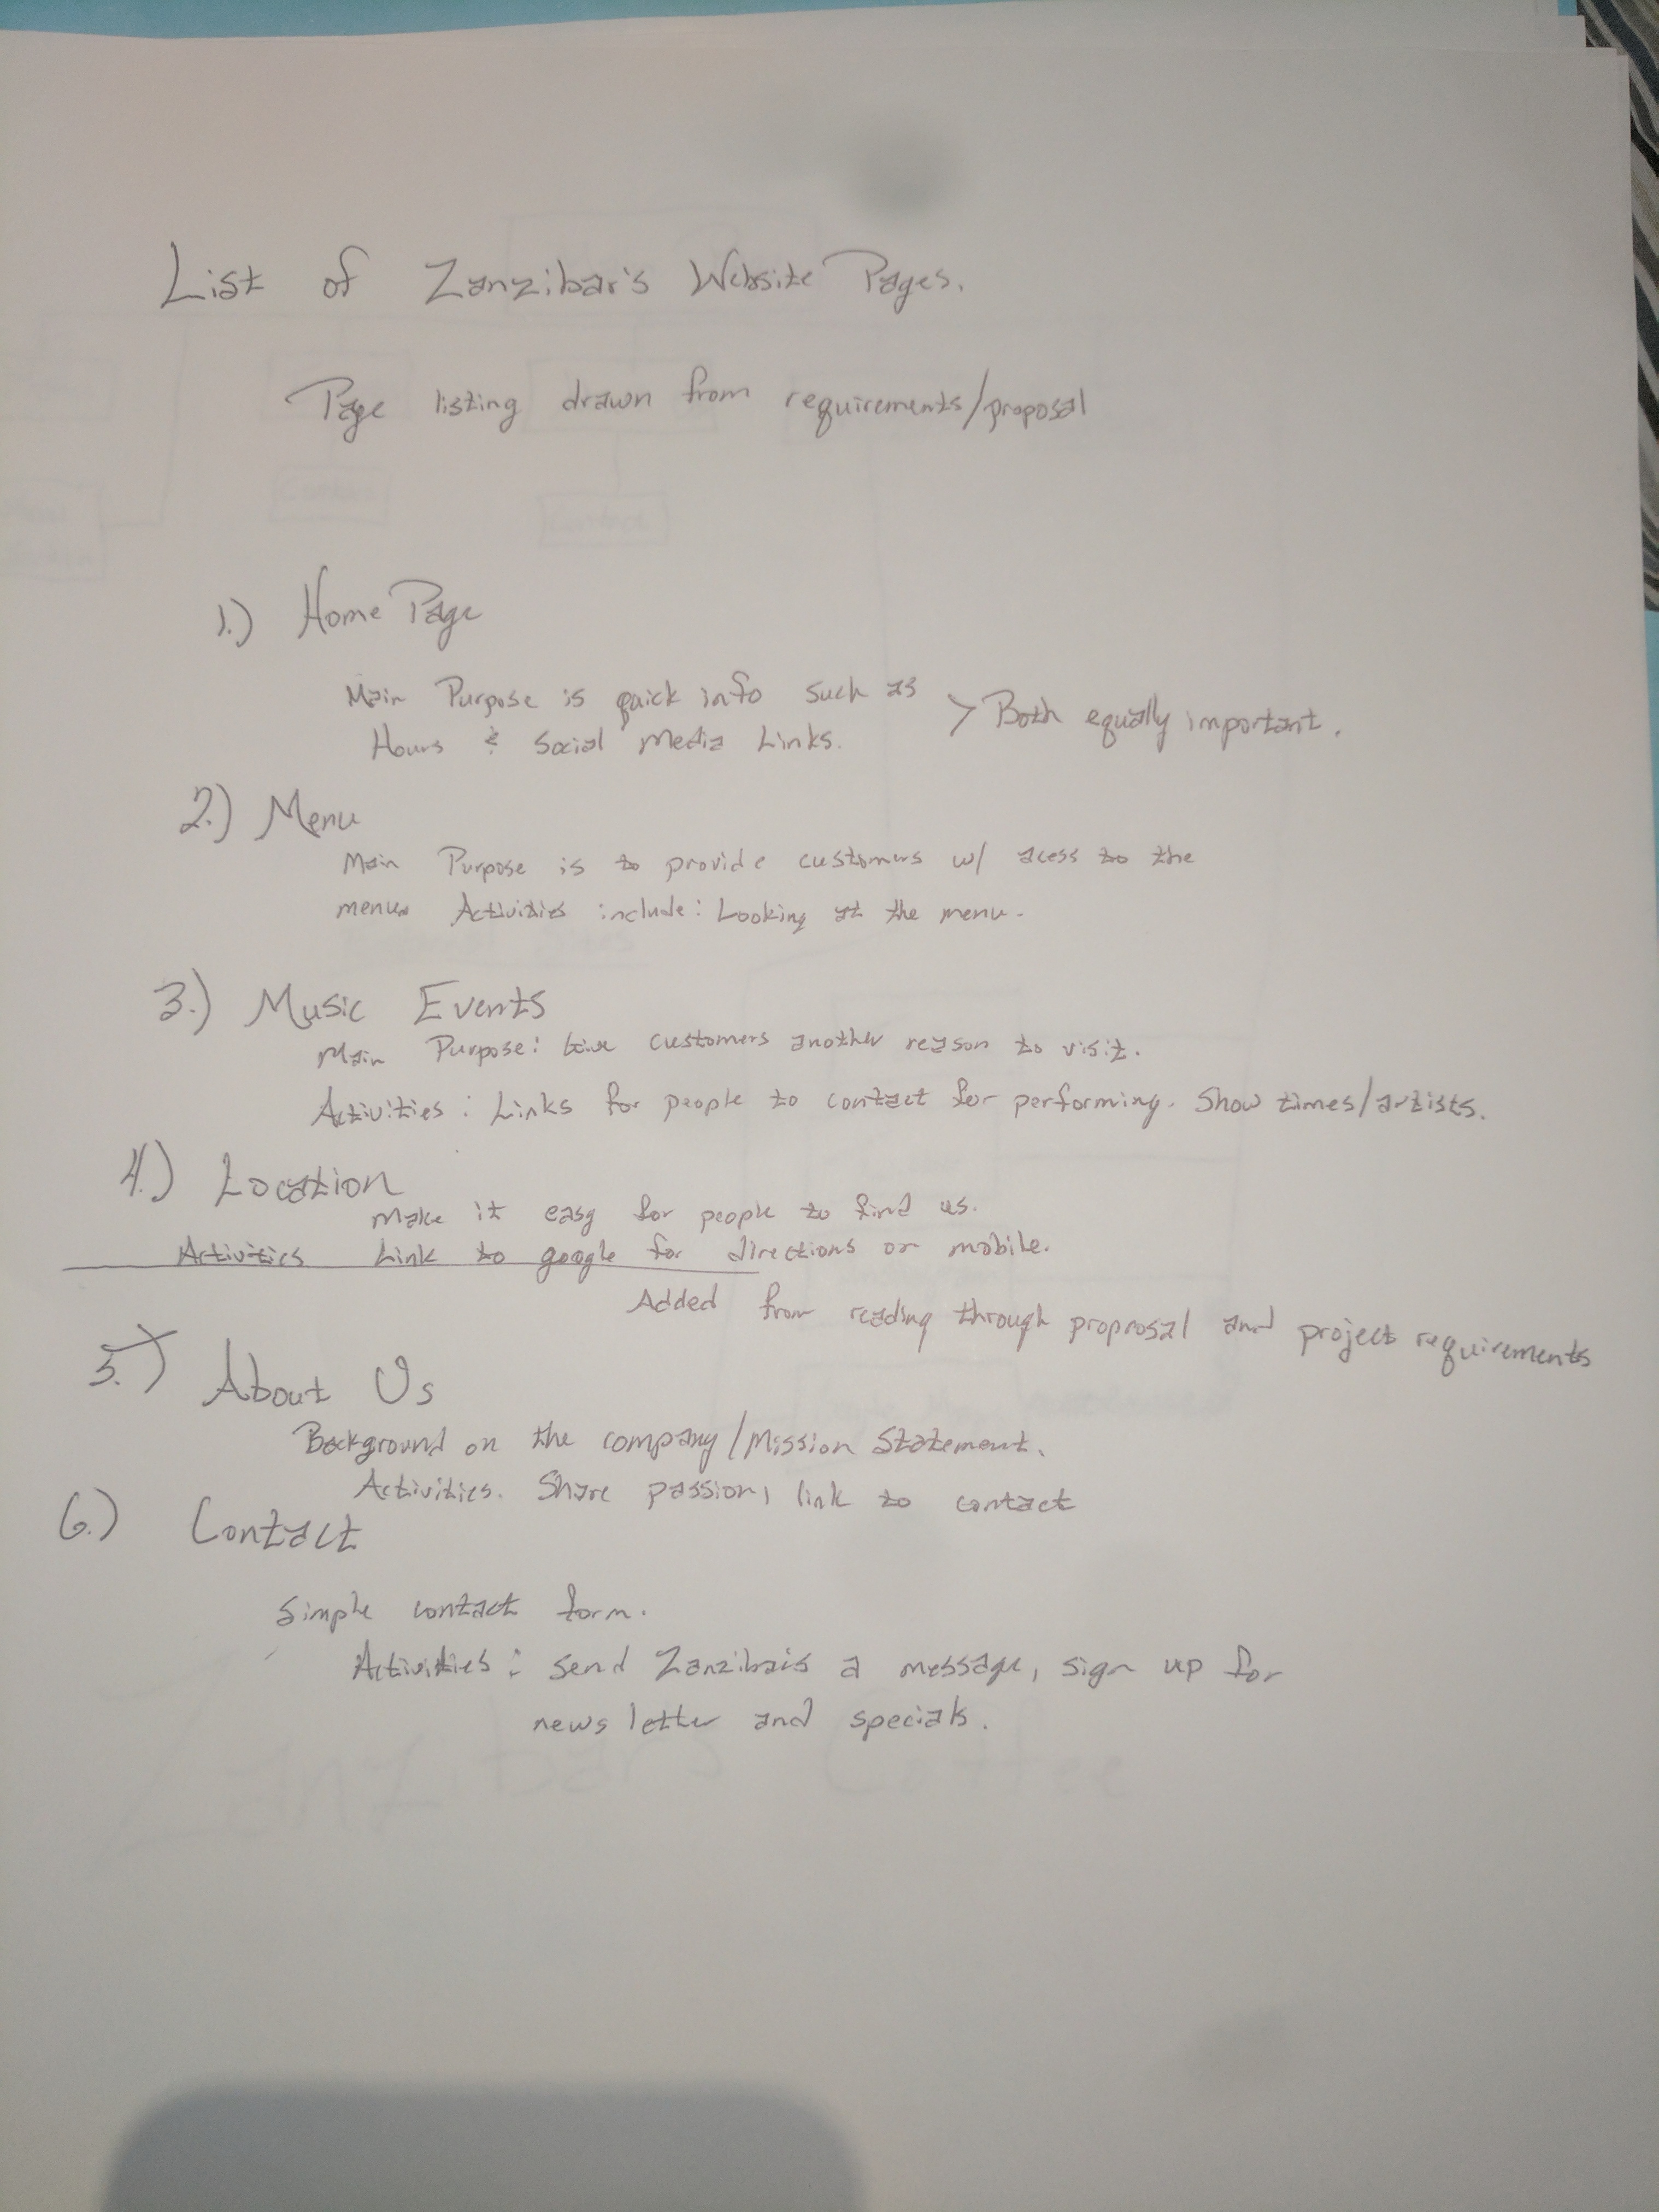 List of Zanzibar's Website Pages.
Page listing drawn from requirements/proposal
1.) Home Page
Main Purpose is quick info such as
Hours & Social Media Links. > Both equally important.
2.) Menu
Main Purpose is to provide customers w/ acess to the
menu. Activities include: Looking at the menu.
3.) Music Events
Main Purpose: Give customers another reason to visit.
Activities: Links for people to contact for performing. Show times/artists.
4.) Location
Make it easy for people to find us.
Activities Link to google for directions or mobile.
Added from reading through proprosal and project requirements
5.) About Us
Background on the company/Mission Statement.
Activities. Share passion, link to contact
6.) Contact
Simple contact form.
Activities: Send Zanzibar's a message, sign up for
news letter and specials.
Contact
Zanzibar's Coffee